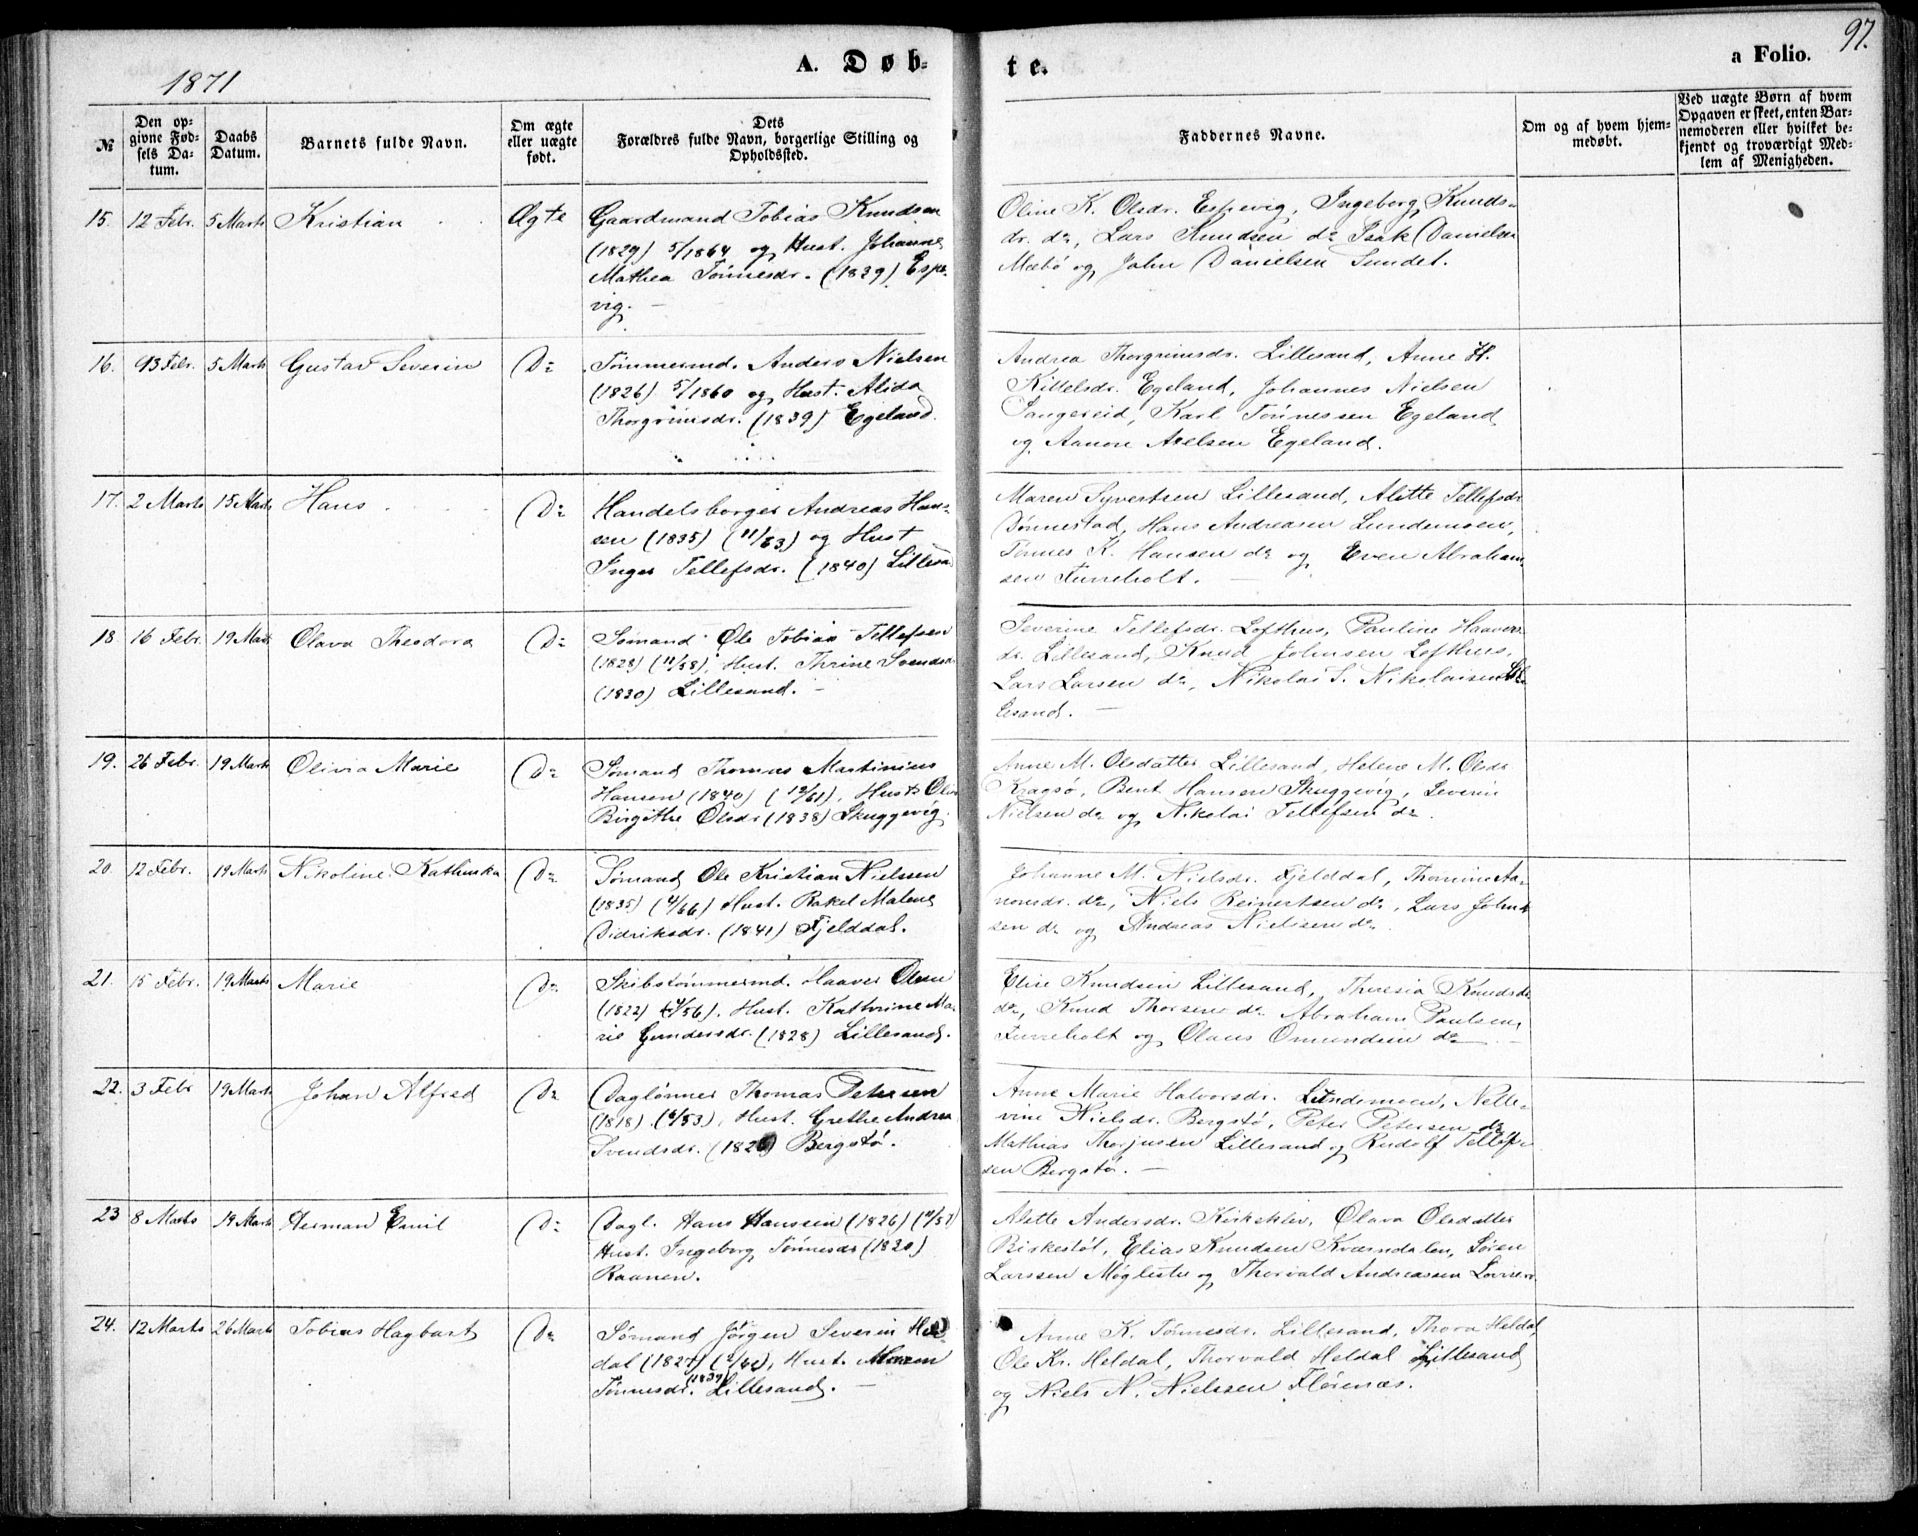 1871
A. Døb-
te.
a Folio.
97.
№
Den op-
givne Fød-
sels Da-
tum.
Daabs
Datum.
Barnets fulde Navn.
Om ægte
eller uægte
født.
Dets
Forældres fulde Navn, borgerlige Stilling og
Opholdssted.
Faddernes Navne.
Om og af hvem hjem-
medøbt.
Ved uægte Børn af hvem
Opgaven er skeet, enten Bar-
nemoderen eller hvilket be-
kjendt og troværdigt Med-
lem af Menigheden.
15. 12 Febr. 5 Marts Kristian Ægte
Gaardmand Tobias Knudsen
(1829) 5/1864 og Hust. Johanne
Mathea Tønnesdr. (1839) Espe-
vig. —
Oline K. Olsdr. Espevig, Ingeborg Knuds-
dr. do, Lars Knudsen do Isak Danielsen
Mæbø og John Danielsen Sundet.
16. 93 Febr. 5 Marts Gustav Severin Do
Tømmermd. Anders Nielsen
(1826) 5/1860 og Hust. Alida
Thorgrimsdr. (1839) Egeland.
Andrea Thorgrimsdr. Lillesand, Anne H.
Kittelsdr. Egeland, Johannes Nielsen
Sangereid, Karl Tønnessen Egeland
og Aanon Axelsen Egeland.
17. 2 Marts 15 Marts Hans Do
Handelsborger Andreas Hans-
sen (1835) (11/63) og Hust
Inger Tellefsdr. (1840) Lillesand
Maren Syvertsen Lillesand, Alette Tellefsdr.
Dønnestad, Hans Andreasen Lundemoen,
Tønnes K. Hansen do og Even Abraham-
sen Furreholt. —
18 16 Febr. 19 Marts Olava Theodora Do
Sømand Ole Tobias Tellefsen
(1828) (11/58), Hust. Thrine Svendsdr.
(1830) Lillesand. —
Severine Tellefsdr. Lofthus, Pauline Haavors-
dr. Lillesand, Knud Johnsen Lofthus,
Lars Larsen do, Nikolai S. Nikolaisen Lil-
lesand. —
19. 26 Febr. 19 Marts Olivia Marie Do
Sømand Thomas Martinius
Hansen (1840) (12/61), Hust.
Birgithe Olsdr (1838) Skuggevig.
Anne M. Olsdatter Lillesand, Helene M. Olsdr
Kragsø, Bent Hansen Skuggevig, Severin
Nielsen do og Nikolai Tellefsen do.
20. 12 Febr. 19 Marts Nikoline Kathinka Do
Sømand Ole Kristian Nielsen
(1835) (4/66) Hust. Rakel Malene
Didriksdr. (1841) Fjelddal.
Johanne M. Nielsdr. Fjelddal, Thomine Aa-
nonsdr. do, Niels Reinertsen do, Lars John-
sen do og Andreas Nielsen do
21. 15 Febr. 19 Marts Marie Do
Skibstømmermd. Haaver Olsen
(1822) (4/56), Hust. Kathrine Ma-
rie Gundersdr. (1828) Lillesand.
Elise Knudsen Lillesand, Theresia Knudsdr
do, Knud Thorsen do Abraham Paulsen,
Furreholt og Olaus Omundsen do —
22. 3 Febr 19 Marts Johan Alfred Do
Daglønner Thomas Petersen
(1818) (4/53), Hust. Grethe Andrea
Svendsdr. (1826) Bergstø.
Anne Marie Halvorsdr. Lundemoen, Nelle-
vine Nielsdr. Bergstø, Peter Petersen do
Mathias Thorjusen Lillesand og Rudolf Tellef-
sen Bergstø. —
23 8 Marts 19 Marts Herman Emil Do
Dagl. Hans Hanssen (1826) (11/57)
Hust. Ingeborg Tønnesdr (1830)
Raanen.
Alette Andersdr. Kirkeklev, Olava Olsdatter
Birkestøl, Elias Knudsen Kværndalen, Søren
Larssen Møglestu og Thorvald Andreassen
24. 12 Marts 26 Marts Tobias Hagbart Do
Sømand Jørgen Severin Hel-
dal (1827) (2/62), Hust. Maren
Tønnesdr. (1839) Lillesand. —
Anne K. Tønnesdr. Lillesand, Thora Heldal,
Ole Kr. Heldal, Thorvald Heldal Lillesand
og Niels N. Nielssen Flørenæs.